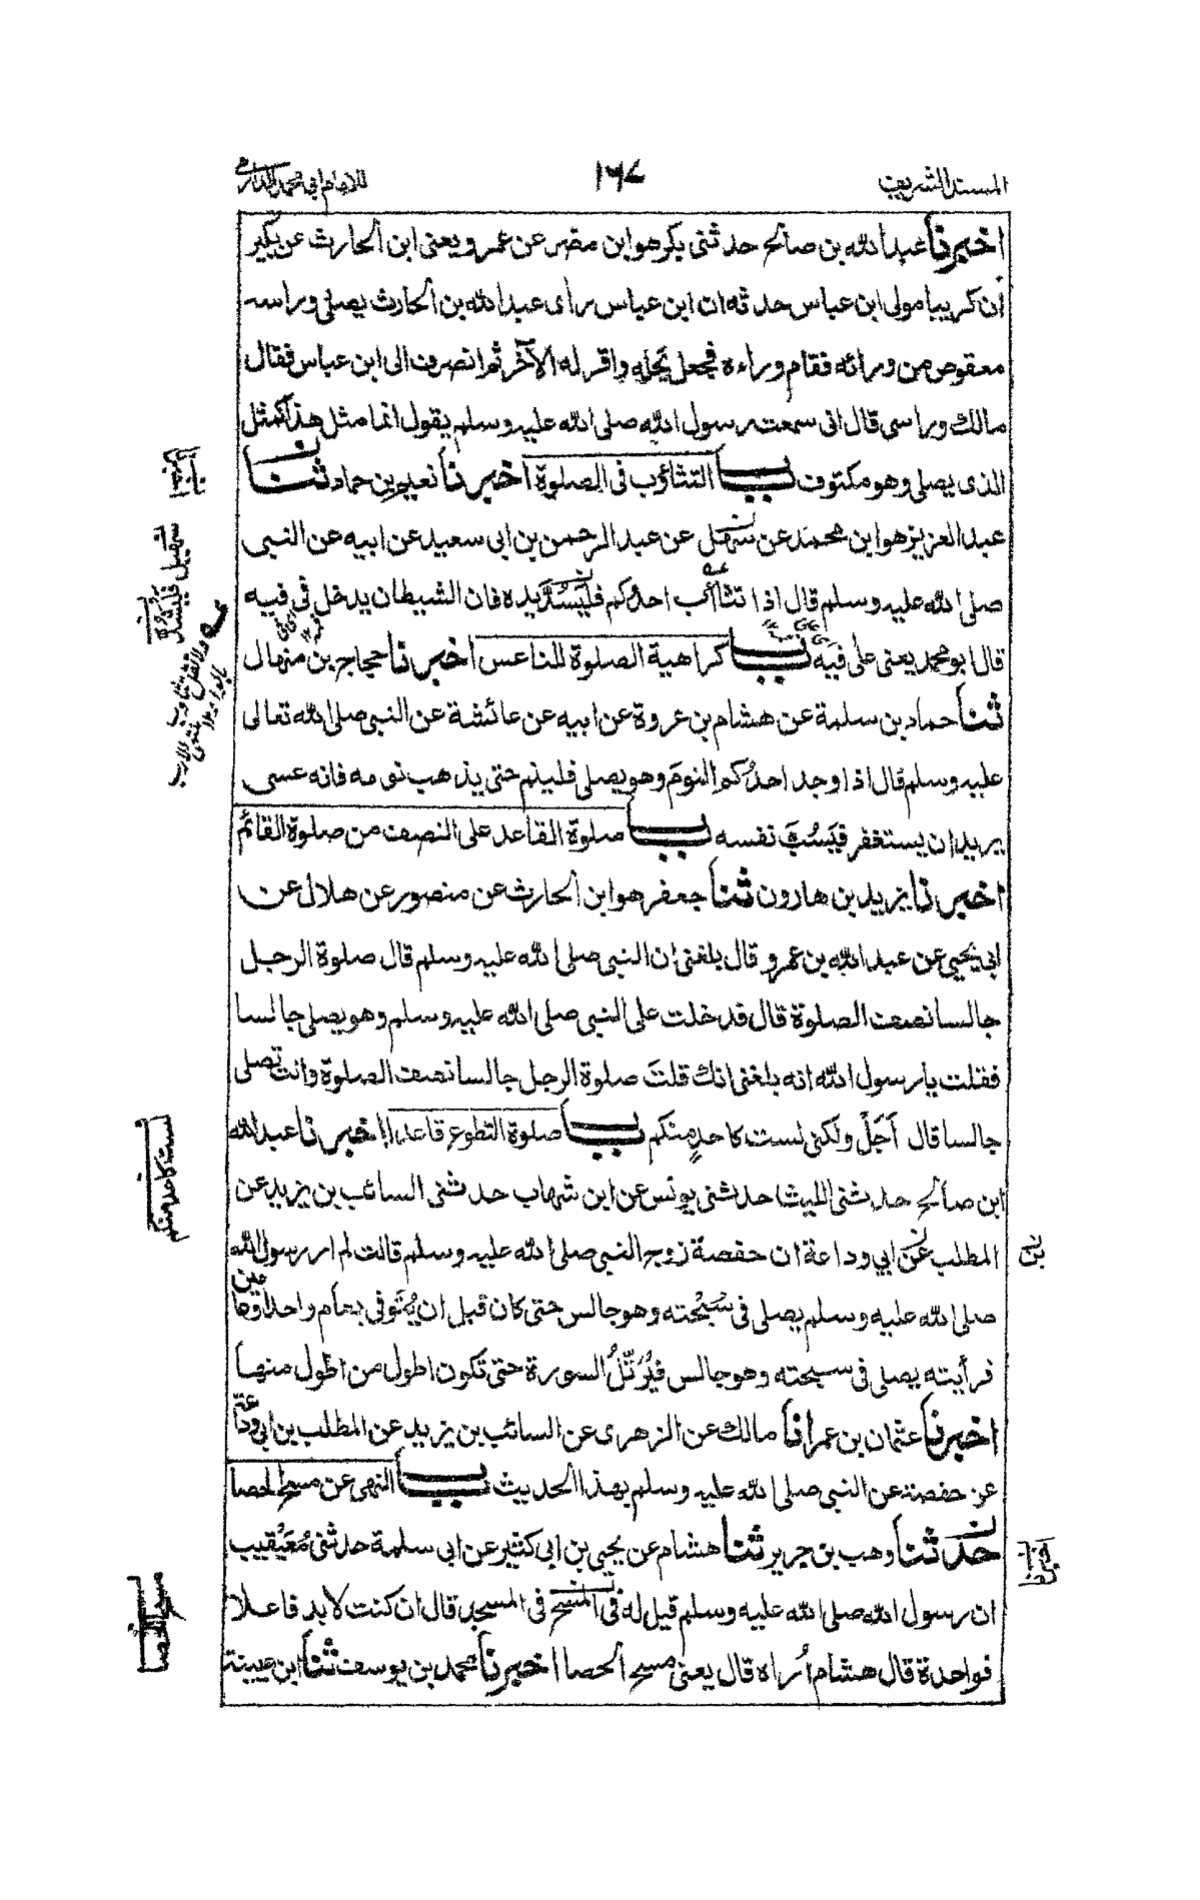 المسند الشريف
١٦٧
للامام ابی محمد الدارمی
اخبرنا عبد الله بن صالح حدثنی بکر هو ابن مضر عن عمرو یعنی ابن الحارث عن بکیر
ان کریبا مولی ابن عباس حدثه ان ابن عباس رأی عبد الله بن الحارث یصلی وراسه
معقوص من ورائه فقام وراءه فجعل یحله واقر له الآخر ثم انصرف الی ابن عباس فقال
مالك وراسی قال انی سمعت رسول الله صلی الله علیه وسلم یقول انما مثل هذا کمثل
الذی یصلی وهو مکتوف باب التثاؤب فی الصلوة اخبرنا نعیم بن حماد ثنا
عبد العزیز هو ابن محمد عن سهل عن عبد الرحمن بن ابی سعید عن ابیه عن النبی
صلی الله علیه وسلم قال اذا تثاأب احدکم فلیسُدَّ یده فان الشیطان یدخل فی فیه
قال ابو محمد یعنی علی فیه باب کراهیة الصلوة للناعس اخبرنا حجاج بن منهال
ثنا حماد بن سلمة عن هشام بن عروة عن ابیه عن عائشة عن النبی صلی الله تعالی
علیه وسلم قال اذا وجد احدُکم النومَ وهو یصلی فلینم حتی یذهب نومه فانه عسی
یرید ان یستغفر فیَسُبَّ نفسه باب صلوة القاعد علی النصف من صلوة القائم
اخبرنا یزید بن هارون ثنا جعفر هو ابن الحارث عن منصور عن هلال عن
ابی یحیی عن عبد الله بن عمرو قال بلغنی ان النبی صلی الله علیه وسلم قال صلوة الرجل
جالسا نصف الصلوة قال فدخلت علی النبی صلی الله علیه وسلم وهو یصلی جالسا
فقلت یا رسول الله انه بلغنی انك قلتَ صلوة الرجل جالسا نصف الصلوة وانت تصلی
جالسا قال اَجَلْ ولکنی لست کاحدٍ منکم باب صلوة التطوع قاعدا اخبرنا عبد الله
ابن صالح حدثنی اللیث حدثنی یونس عن ابن شهاب حدثنی السائب بن یزید عن
المطلب عن ابی وداعة ان حفصة زوج النبی صلی الله علیه وسلم قالت لم ار رسول الله
صلی الله علیه وسلم یصلی فی سُبْحته وهو جالس حتی کان قبل ان یُتَوفی بعام واحد او عامین
فرأیته یصلی فی سبحته وهو جالس فیُرَتِّلُ السورة حتی تکون اطول من اطول منها
اخبرنا عثمان بن عمر انا مالك عن الزهری عن السائب بن یزید عن المطلب بن ابی وداعة
عن حفصة عن النبی صلی الله علیه وسلم بهذا الحدیث باب النهی عن مسح الحصا
حدثنا وهب بن جریر ثنا هشام عن یحیی بن ابی کثیر عن ابی سلمة حدثنی مُعَیْقیب
ان رسول الله صلی الله علیه وسلم قیل له فی المسح فی المسجد قال ان کنت لا بد فاعلا
فواحدة قال هشام اُراه قال یعنی مسح الحصا اخبرنا محمد بن یوسف ثنا ابن عیینة
سهیل
لست کاحد منکم
بن